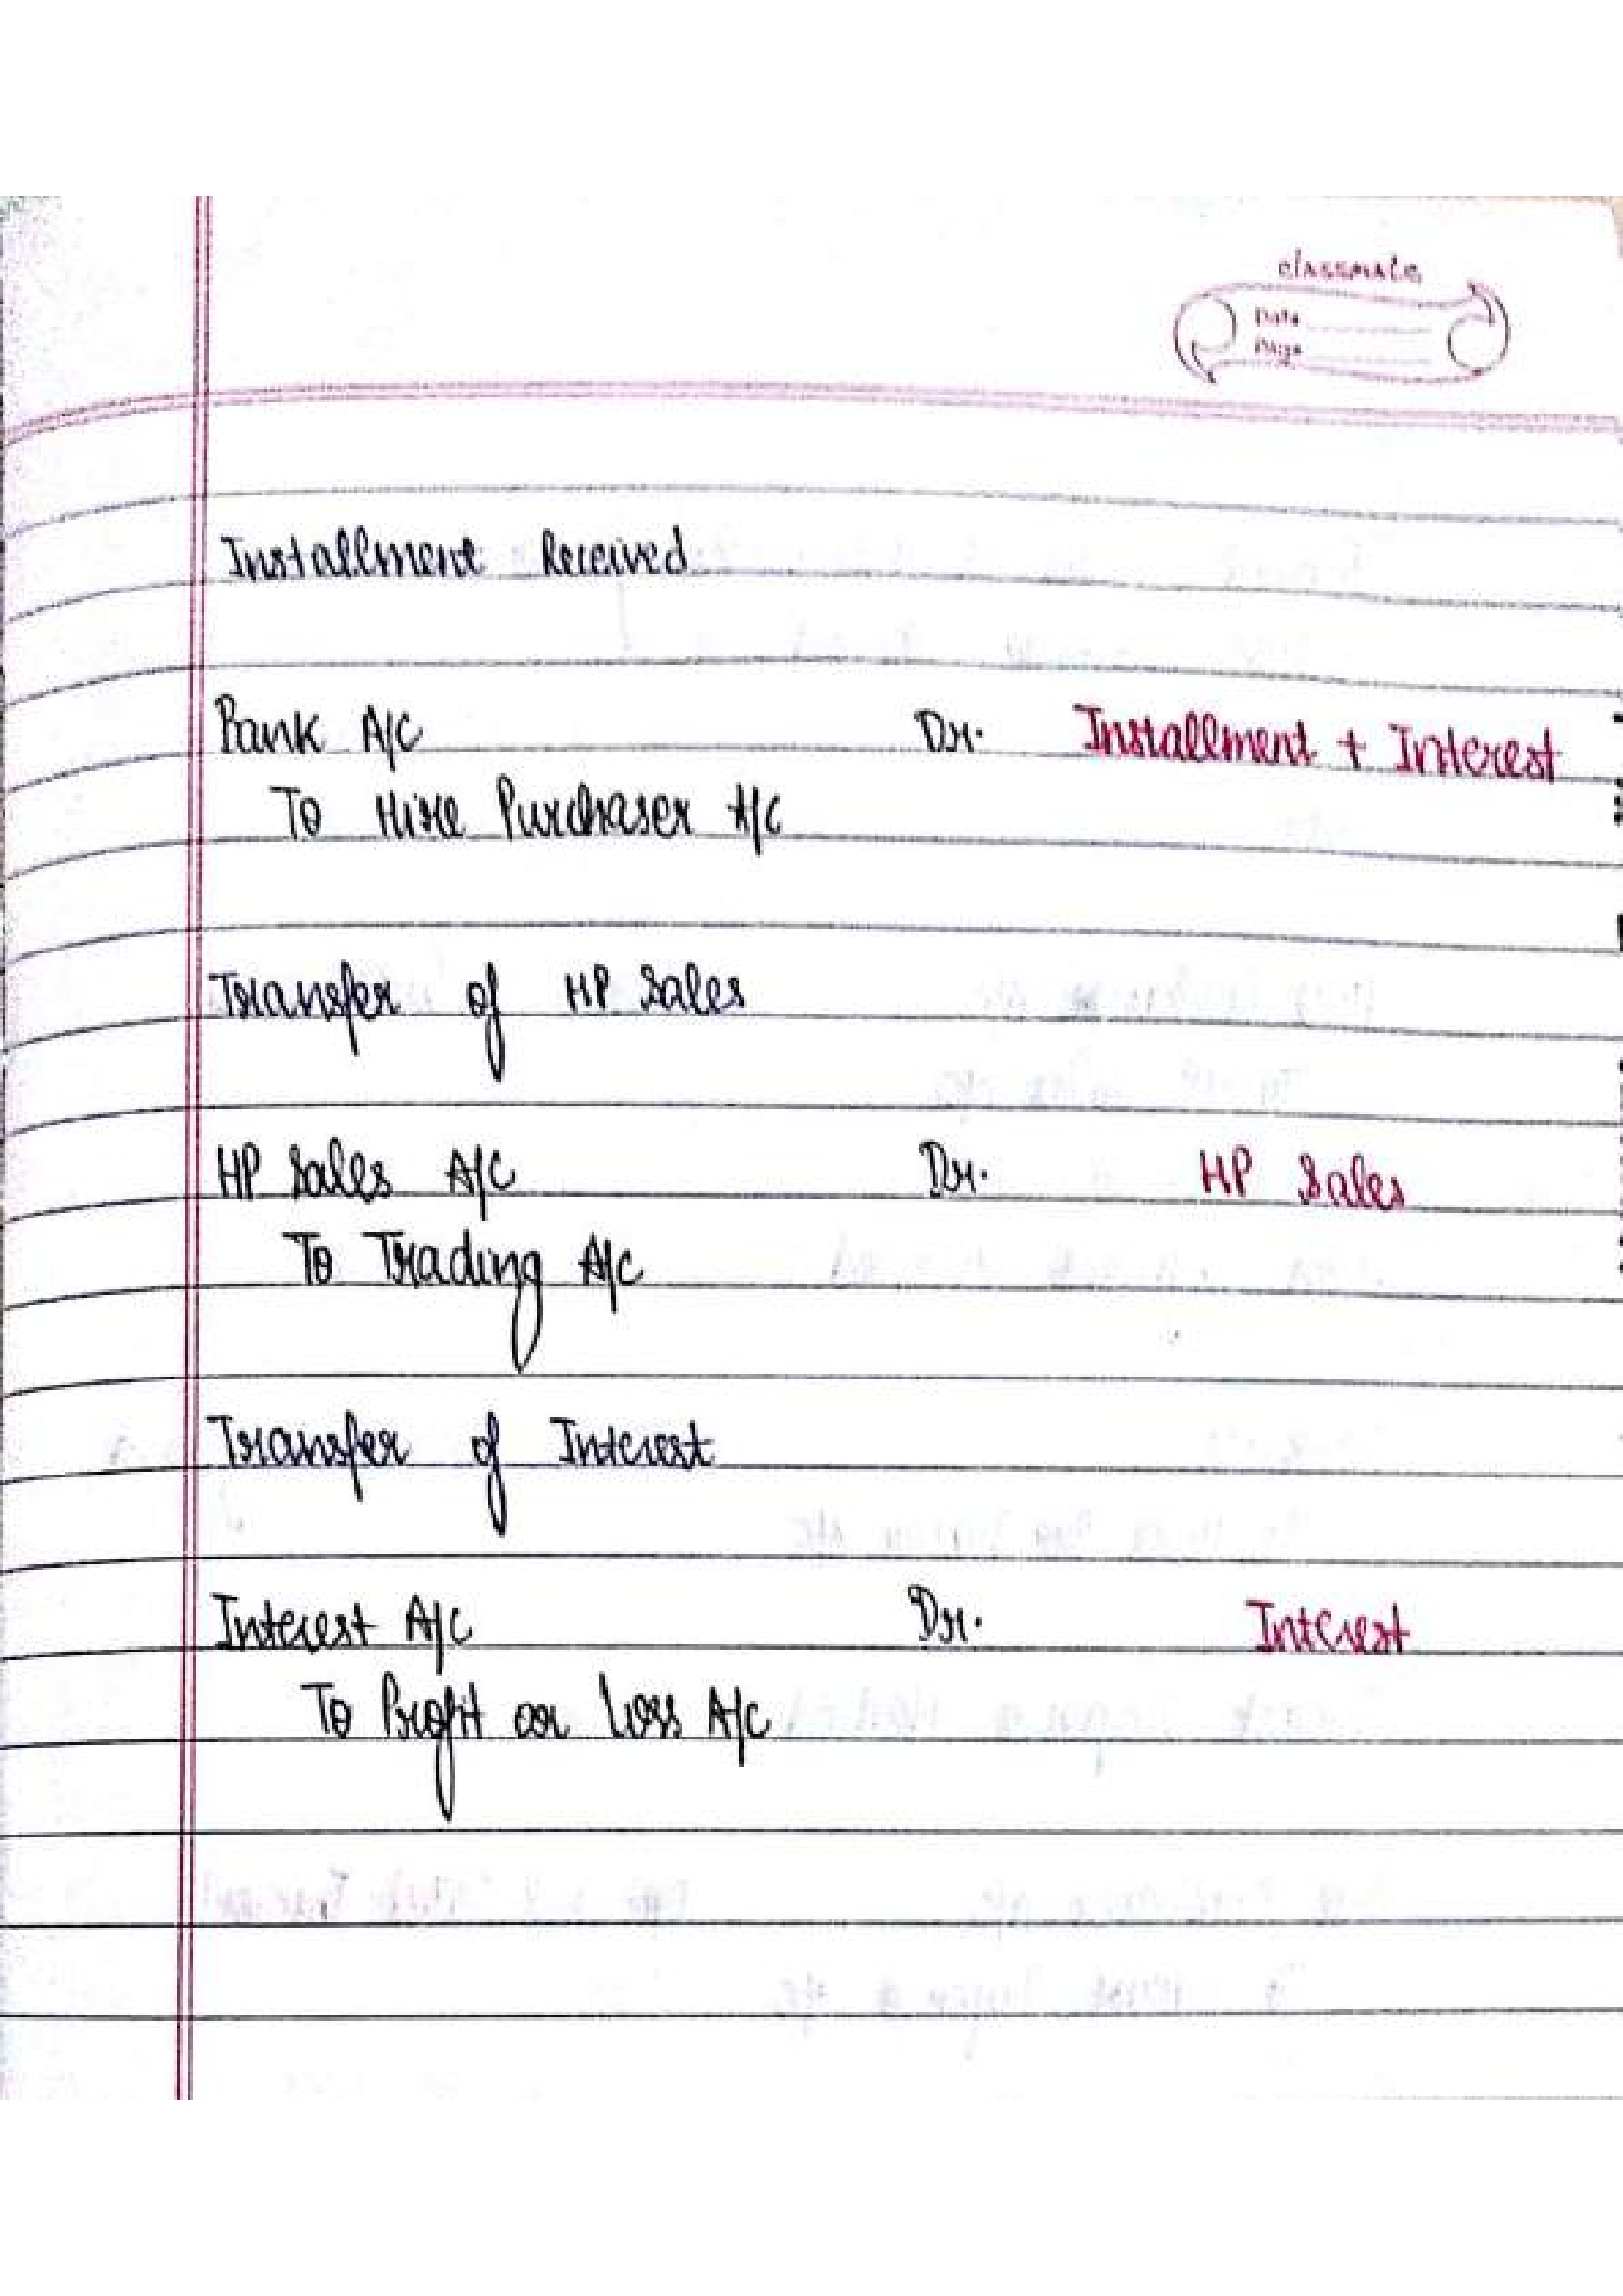 classmate
Date
Page
Installment Received
Bank A/C Dr. Installment + Interest
To Hire Purchaser A/C
Transfer of HP Sales
HP Sales A/C Dr. HP Sales
To Trading A/C
Transfer of Interest
Interest A/C Dr. Interest
To Profit or Loss A/C